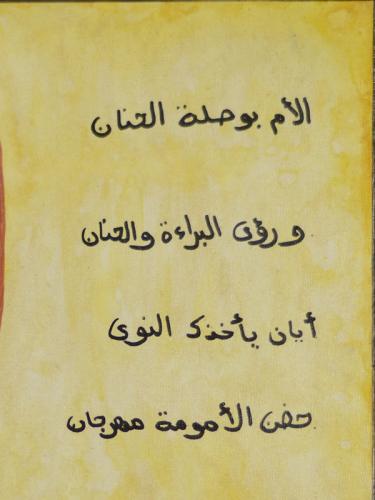 الأم بوصلة الحنان
و رؤى البراءة والحنان
أيان يأخذك النوى
حضن الأمومة مهرجان